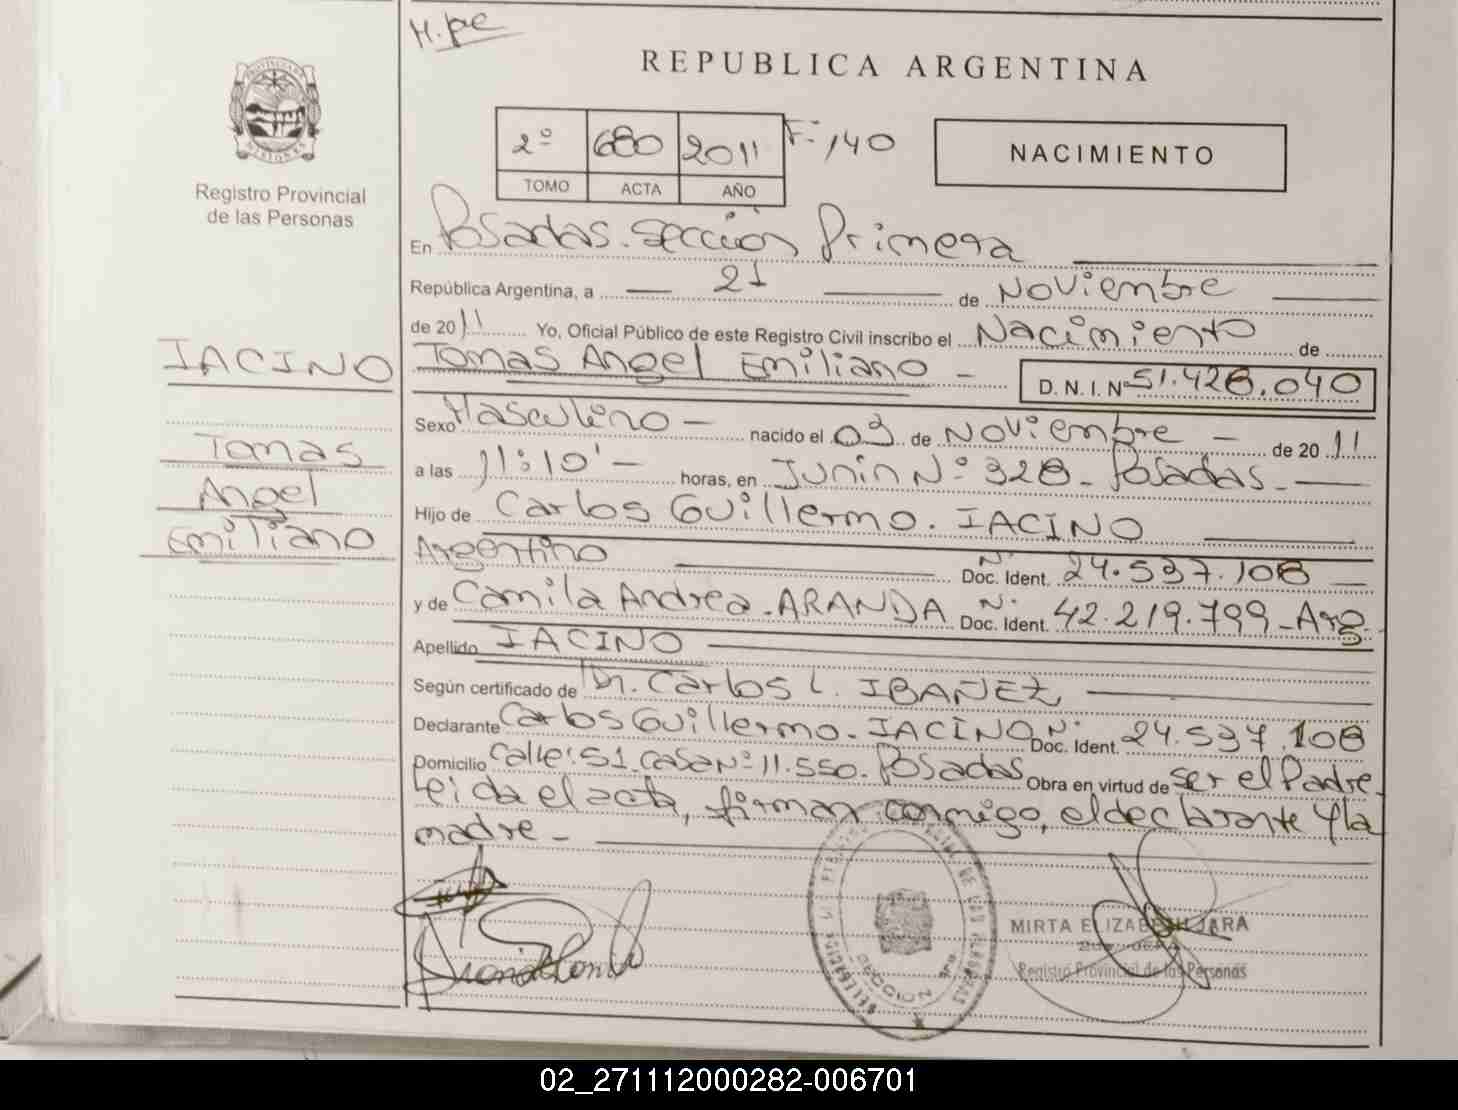 H. pe
REPUBLICA ARGENTINA
2º 680 2011 Fº 140
TOMO ACTA AÑO
NACIMIENTO
Registro Provincial
de las Personas
En Posadas. Sección Primera
República Argentina, a 21 de Noviembre
de 2011 Yo, Oficial Público de este Registro Civil inscribo el Nacimiento de
Tomas Angel Emiliano - D. N. I. Nº 51.428.040
Sexo Masculino - nacido el 03 de Noviembre - de 2011
a las 11:10' - horas, en Junin Nº 328 - Posadas -
Hijo de Carlos Guillermo. IACINO
Argentino Doc. Ident. Nº 24.537.108
y de Camila Andrea - ARANDA Doc. Ident. Nº 42.219.799 - Arg.
Apellido IACINO
Según certificado de Dr. Carlos L. IBAÑEZ
Declarante Carlos Guillermo - IACINO Doc. Ident. Nº 24.537.108
Domicilio Calle: 51. Casa Nº 11.550. Posadas Obra en virtud de Ser el Padre.
Leida el acta, firman conmigo, el declarante y la
madre -
IACINO
Tomas
Angel
Emiliano
MIRTA ELIZABETH JARA
Registro Provincial de las Personas
02_271112000282-006701